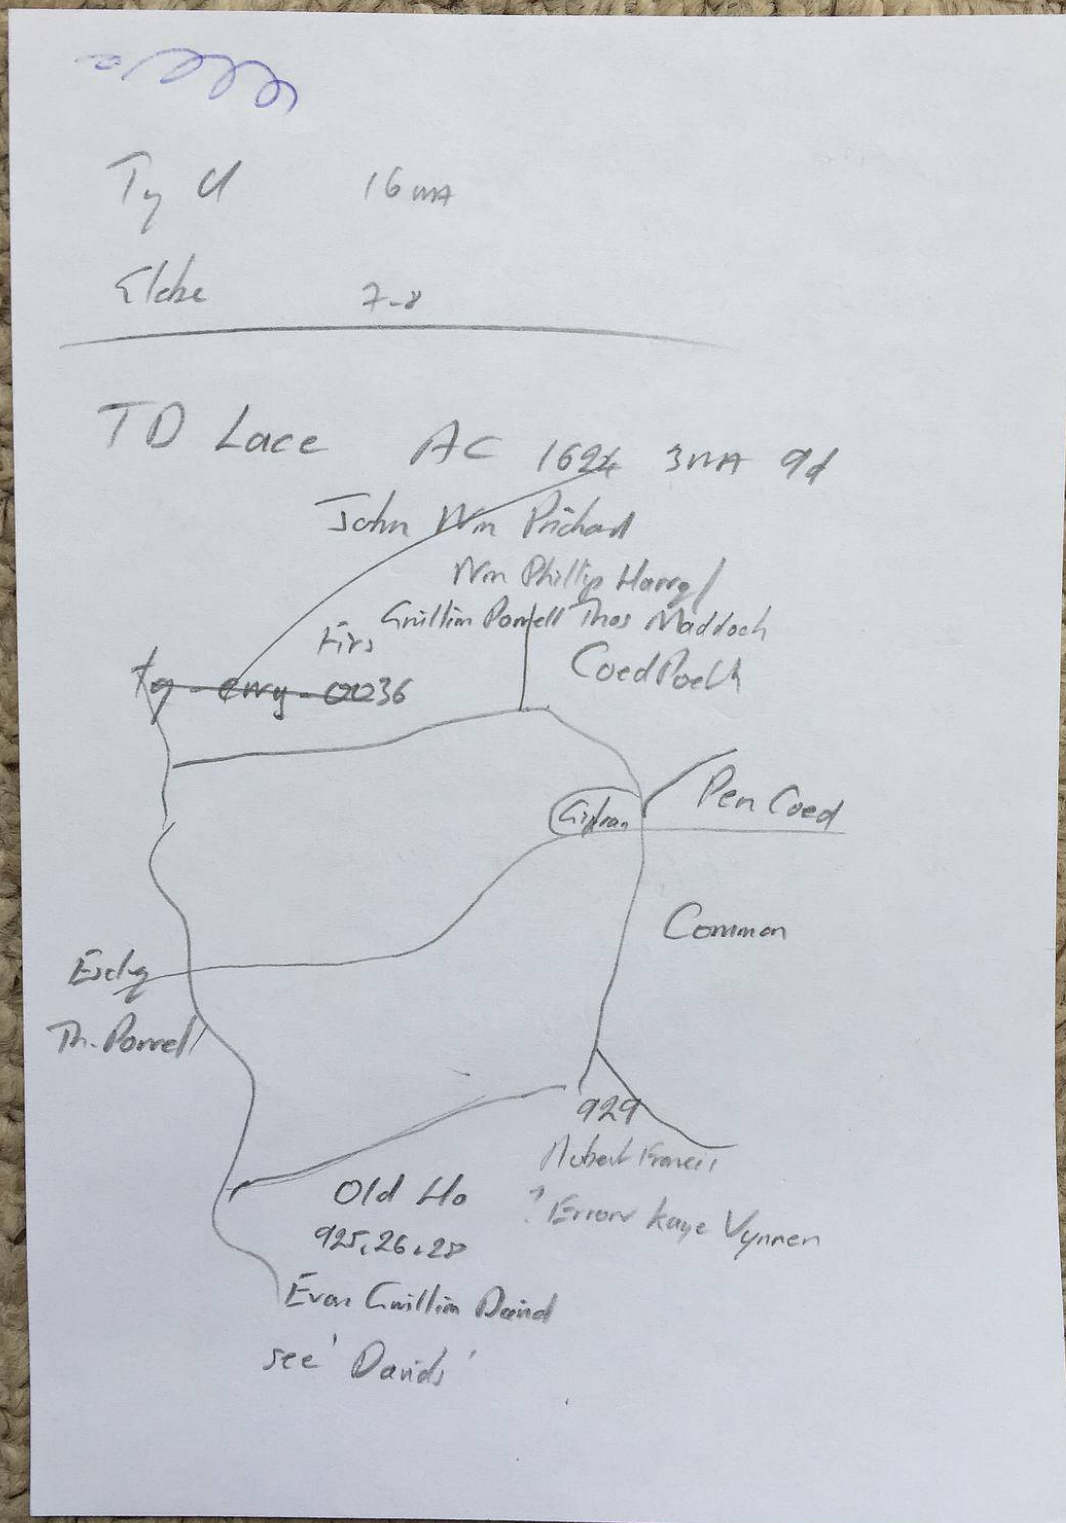 Ty U 16 MA
7-8
TD Lace AC 1624 3MA 9d
John Wm Prichard
Wm Phillip Harry/
Guillim Powell Thos Maddoch
Firs
Coed Poeth
0036
Pen Coed
Common
Th. Powell
929
Robert Francis
Old Ho
? Errow kaye Vynnen
925, 26, 28
Evan Guillim David
see 'Davids'